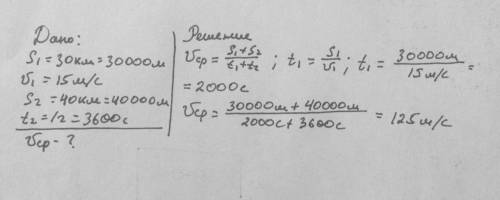 Дано:
S₁ = 30км = 30000м
υ₁ = 15 м/с
S₂ = 40км = 40000м
t₂ = 12 = 3600с
υср - ?
Решение
υср = S₁+S₂ / t₁+t₂ ; t₁ = S₁/υ₁ ; t₁ = 30000м / 15 м/с =
= 2000с
υср = 30000м + 40000м / 2000с + 3600с = 125 м/с